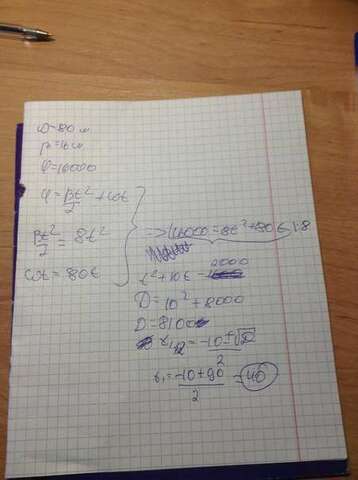 ω=80
β=16
φ=16000
φ = βt²/2 + ωt
βt²/2 = 8t²
ωt = 80t
=> 16000 = 8t² + 80t | : 8
t² + 10t - 2000
D = 10² + 8000
D = 8100
t₁,₂ = -10 ± √D / 2
t₁ = -10 + 90 / 2 = 40